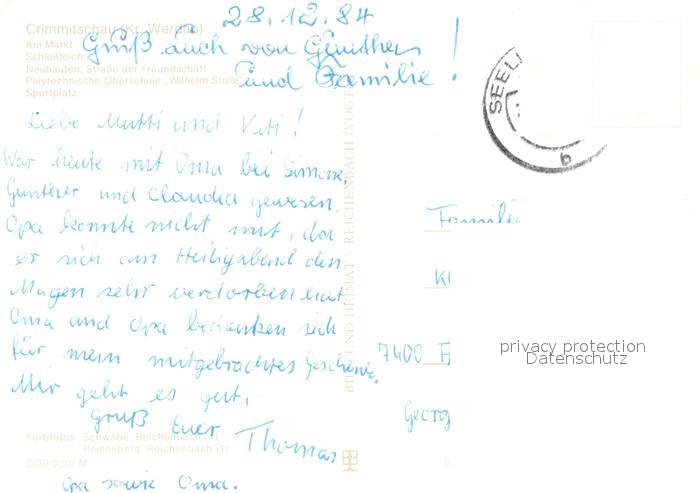 28.12.84
Crimmitschau (Kr. Werdau)
Gruß auch von Günther
Am Markt
Schloßteich
Neubauten, Straße der Freundschaft
und Familie!
Polytechnische Oberschule „Wilhelm Stolle
Sportplatz
Liebe Mutti und Vati!
War heute mit Oma bei Simone,
Günther und Claudia gewesen.
Opa konnte nicht mit, da
er sich am Heiligabend den
Magen sehr verdorben hat
Oma und Opa bedanken sich
für mein mitgebrachtes Geschenk.
Mir geht es gut.
Gruß Euer Thomas
Opa sowie Oma.
Farbfotos: Schwabe, Reichenbach (4)
Reisenberg, Reichenbach (1)
DDR 0,20 M
BILD UND HEIMAT REICHENBACH (VOGT
SEEL
b
Familie
Kl
7400
Georg
privacy protection
Datenschutz